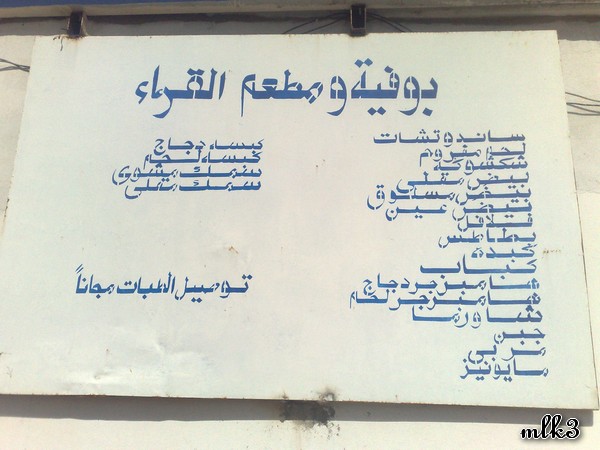 بوفية ومطعم القراء
ساندوتشات
لحم مفروم
شكشوكة
بيض مقلي
بيض مسلوق
بيض عين
فلافل
بطاطس
كبده
كباب
هامبرجر دجاج
هامبرجر لحم
شاورما
جبن
مربى
مايونيز
كبسه دجاج
كبسه لحم
سمك مشوي
سمك مقلي
توصيل الطبات مجاناً
mlk3